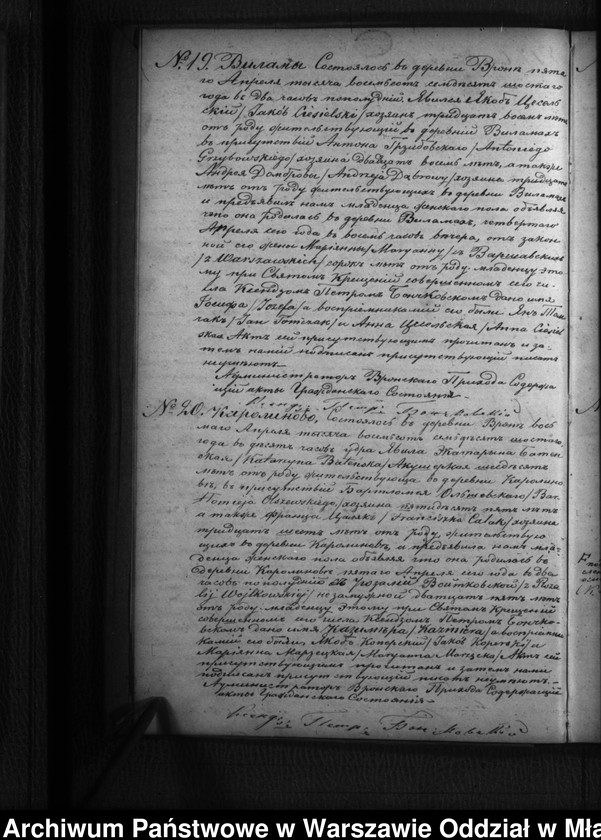 № 19. Виламы Состоялось въ деревни Вронѣ пята-
го Апреля тысяча восемьсотъ семдѣсятъ шостаго
года въ два часовъ пополудній. Явился Якобъ Цесель-
скій /Jakób Ciesielski/ хозяинъ тридцатъ восмъ лѣтъ
отъ роду жительствующій въ деревній Виламахъ
въ присутствій Антона Гржибовскаго /Antoniego
Grzybowskiego/ хозяина двадцатъ восемь лѣтъ, а также
Андрея Домбровы /Andrzeja Dąbrowy/ хозяина тридцать
лѣтъ отъ роду жительствующихъ въ деревни Виламахъ
и предъявилъ намъ младенца женскаго пола объявляя
что она родилась въ деревни Виламахъ, четвертаго
Апреля сего года въ восемь часовъ вечера, отъ закон-
ной его жены Маріянны /Maryanny/ съ Варшавскихъ
/z Warszawskich/ сорокъ лѣтъ отъ роду. Младенцу это-
му при Святомъ Крещеній совершенномъ сего чи-
сла Ксендзомъ Петромъ Бончковскомъ дано имя
Іосифа /Józefa/ а воспріемниками его были Янъ Том-
чакъ /Jan Tomczak/ и Анна Цесельская /Anna Ciesiel-
ska/. Актъ сей присутствующимъ прочитанъ и за-
темъ нами подписанъ присутствующій писать
неумѣютъ.
Администраторъ Вронскаго Прихода Содержа-
щій акты Гражданскаго Состоянія
Ксендзъ Петръ Бончковскій
№ 20. Каролиново. Состоялось въ деревни Вронѣ вось-
маго Апреля тысяча восемьсотъ семдѣсятъ шостаго
года въ десять часовъ утра. Явила Катарина
/Katarzyna/ Акушерка шесдѣсятъ
лѣтъ отъ роду жительствующа въ деревни Каролино-
вѣ, въ присутствій Бартломея Ольшевскаго /Bar-
tłomieja Olszewskiego/ хозяина пятидѣсятъ пять лѣтъ
а также Франца Цаляка /Franciszka Calak/ хозяина
тридцатъ шесть лѣтъ отъ роду, жительствую-
щихъ въ деревни Каролиновѣ, и предъявила намъ мла-
денца женскаго пола объявляя что она родилась въ
деревни Каролиновѣ пятаго Апреля сего года въ два
часовъ пополудній съ Розалій Войтковской /z Roza-
lij Wojtkowskiej/ незамужной двадцатъ пять лѣтъ
отъ роду. Младенцу этому при Святомъ Крещеній
совершенномъ сего числа Ксендзомъ Петромъ Бончко-
вскомъ дано имя Казимѣра /Kazmira/, а воспріемни-
ками его были, Якобъ /Jakób/ и
Маріянна /Maryanna/. Актъ сей
присутствующимъ прочитанъ и затемъ нами
подписанъ присутствующій писать неумѣютъ.
Администраторъ Вронскаго Прихода Содержащій
акты Гражданскаго Состоянія
Ксендзъ Петръ Бончковскій
Archiwum Państwowe w Warszawie Oddział w Mła